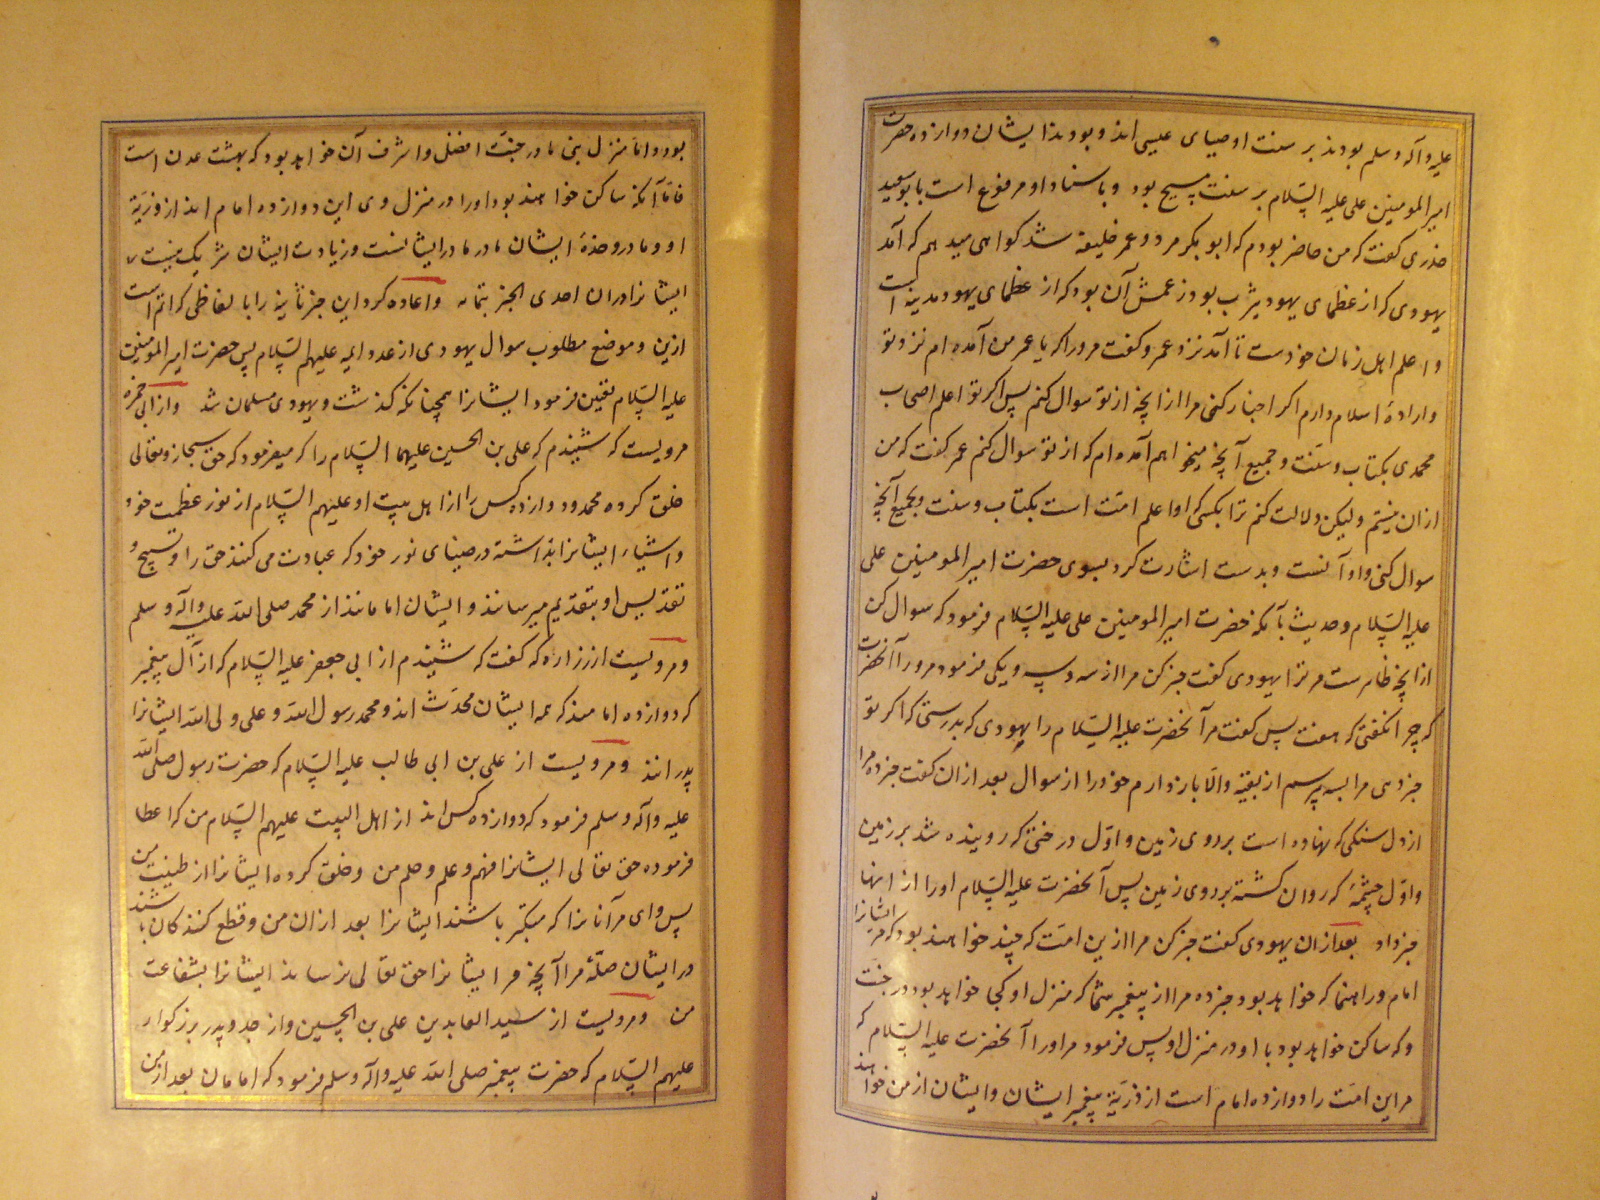 علیه و آله و سلم بودند بر سنت اوصیای عیسی اند و بودند ایشان دوازده حضرت
امیرالمومنین علی علیه السلام بر سنت مسیح بود و باسناد او مرفوع است بابو سعید
خدری گفت که من حاضر بودم که ابو بکر مرد و عمر خلیفه شد کواهی میدهم که آمد
یهودی که از عظمای یهود یثرب بود زعمش آن بود که از عظمای یهود مدینه است
و اعلم اهل زمان خودست تا آمد نزد عمر و گفت مرورا که یا عمر من آمده ام نزد تو
و ارادهٔ اسلام دارم اکر اخبار کنی مرا از آنچه از تو سوال کنم پس اکر تو اعلم اصحاب
محمدی بکتاب و سنت و جمیع آنچه میخواهم آمده ام که از تو سوال کنم عمر گفت که من
از ان نیستم ولیکن دلالت کنم ترا بکسی که او اعلم امت است بکتاب و سنت و بجمیع آنچه
سوال کنی و او آنست و بدست اشارت کرد بسوی حضرت امیرالمومنین علی
علیه السلام و حدیث بآنکه حضرت امیرالمومنین علی علیه السلام فرمود که سوال کن
از آنچه ظاهرست مر ترا یهودی گفت خبر کن مرا از سه و سه و یکی فرمود مرورا آنحضرت
که چرا نگفتی که هفت پس گفت مر آنحضرت علیه السلام را یهودی که بدرستی که اکر تو
خبر دهی مرا بسه پرسم از بقیه والا باز دارم خود را از سوال بعد از ان گفت خبر ده مرا
از دل سنگی که نهاده است بر روی زمین و اول درختی که روینده شد بر زمین
و اول چشمهٔ که روان کشته بر روی زمین پس آنحضرت علیه السلام اورا از انها
خبر داد بعد از ان یهودی گفت خبر کن مرا ازین امت که چند خواهند بود که مر ایشانرا
امام و راهنما که خواهد بود و خبر ده مرا از پیغمبر شما که منزل او کجا خواهد بود در جنت
و که ساکن خواهد بود با او در منزل او پس فرمود مر اورا آنحضرت علیه السلام که
مر این امت را دوازده امام است از ذریهٔ پیغمبر ایشان و ایشان از من خواهند
بود و اما منزل نبی ما در جنت افضل و اشرف آن خواهد بود که بهشت عدن است
فاما آنکه ساکن خواهند بود اورا در منزل وی این دوازده امام اند از ذریهٔ
او و مادر و جدهٔ ایشان مادر مادر ایشانست و زیادت ایشان شریک نیست
ایشانرا دران احدی الخبر بتمامه و اعاده کرد این خبر ثانیه را با لفاظی که اتم است
ازین و موضع مطلوب سوال یهودی از عدد ایمه علیهم السلام پس حضرت امیرالمومنین
علیه السلام تعیین فرمود ایشانرا همچنانکه کذشت و یهودی مسلمان شد و از ابی حمزه
مرویست که شنیدم که علی بن الحسین علیهما السلام را که میفرمود که حق سبحانه و تعالی
خلق کرده محمد و دوازده کس را از اهل بیت او علیهم السلام از نور عظمت خود
و اشیاء ایشانرا بداشته در ضیای نور خود که عبادت می کنند حق را و تسبیح و
تقدیس او بتقدیم میرسانند و ایشان امامانند از محمد صلی الله علیه و آله و سلم
و مرویست از زراره که گفت که شنیدم از ابی جعفر علیه السلام که از آل پیغمبر
که دوازده امامند که همه ایشان محدث اند و محمد رسول الله و علی ولی الله ایشانرا
پدرانند و مرویست از علی بن ابی طالب علیه السلام که حضرت رسول صلی الله
علیه و آله و سلم فرمود که دوازده کس اند از اهل البیت علیهم السلام من که اعطا
فرموده حق تعالی ایشانرا فهم و علم و حلم من و خلق کرده ایشانرا از طینت من
پس وای مر آنانرا که متکبر باشند ایشانرا بعد از ان من و قطع کنندکان باشند
در ایشان صلهٔ مرا آنچه مر ایشانرا حق تعالی نرساند ایشانرا بشفاعت
من و مرویست از سید العابدین علی بن الحسین و از جد و پدر بزرکوار
علیهم السلام که حضرت پیغمبر صلی الله علیه و آله و سلم فرمود که امامان بعد از من